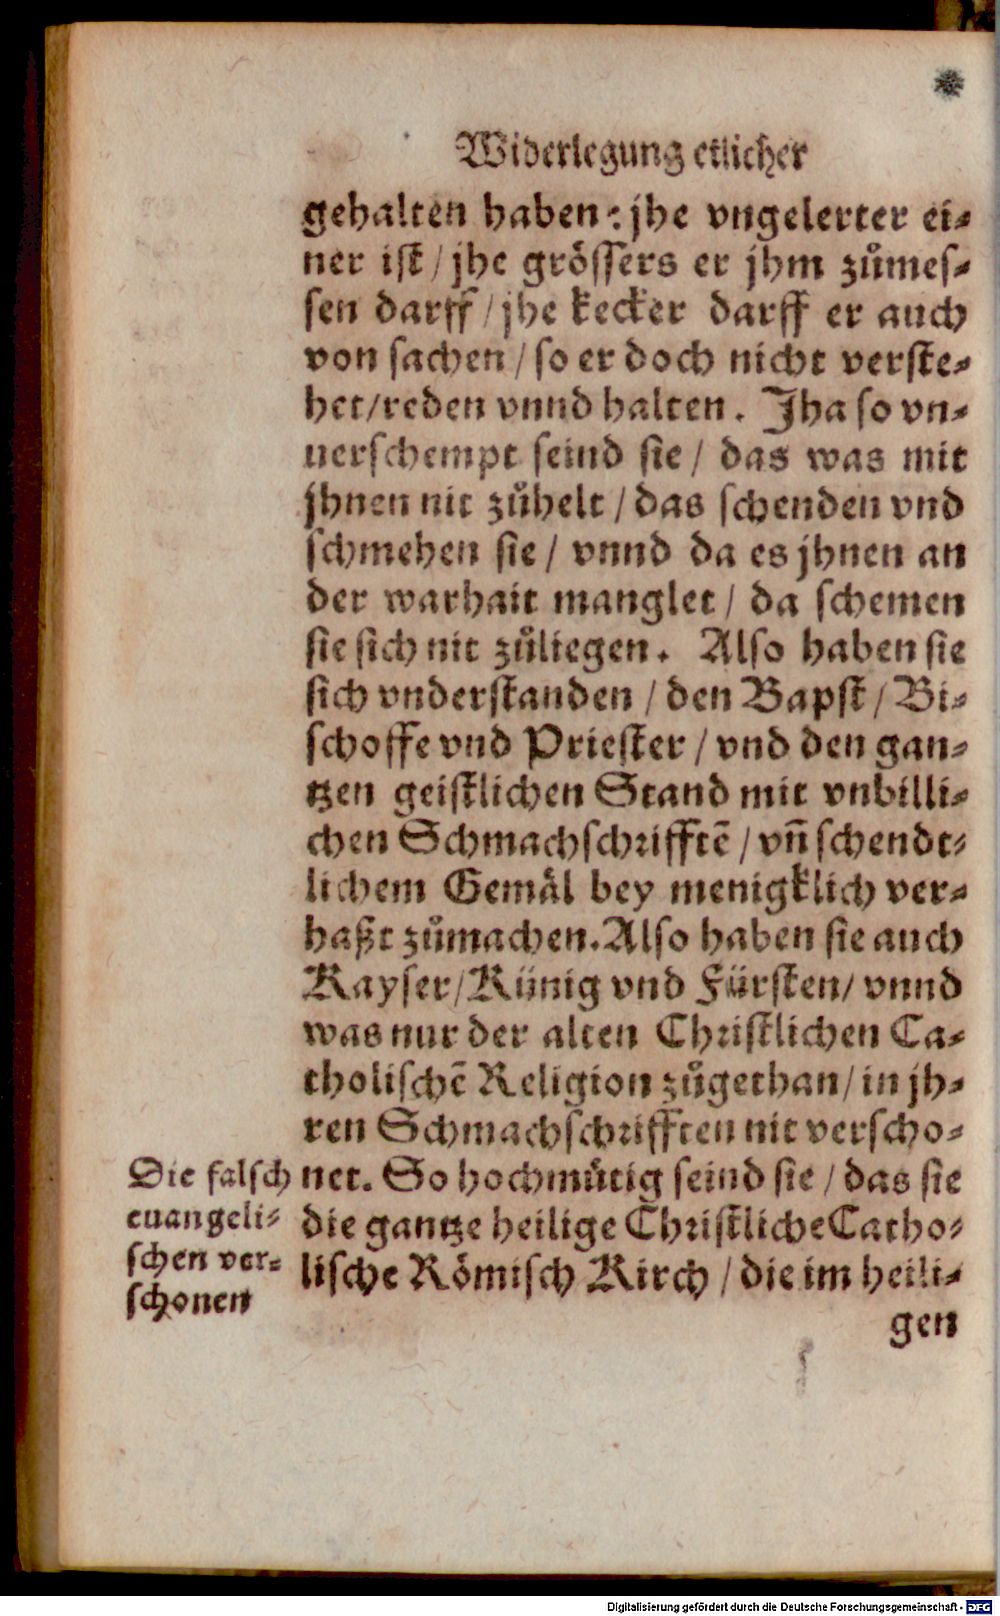 Widerlegung etlicher
gehalten haben: jhe vngelerter ei-
ner ist / jhe grössers er jhm zůmes-
sen darff / jhe kecker darff er auch
von sachen / so er doch nicht verste-
het/reden vnnd halten. Jha so vn-
uerschempt seind sie / das was mit
jhnen nit zůhelt / das schenden vnd
schmehen sie / vnnd da es jhnen an
der warhait manglet / da schemen
sie sich nit zůliegen. Also haben sie
sich vnderstanden / den Bapst / Bi-
schoffe vnd Priester / vnd den gan-
tzen geistlichen Stand mit vnbilli-
chen Schmachschrifftẽ / vñ schendt-
lichem Gemäl bey menigklich ver-
haßt zůmachen. Also haben sie auch
Kayser/Künig vnd Fürsten/ vnnd
was nur der alten Christlichen Ca-
tholischẽ Religion zůgethan/ in jh-
ren Schmachschrifften nit verscho-
net. So hochmůtig seind sie / das sie
die gantze heilige Christliche Catho-
lische Römisch Kirch / die im heili-
gen
Die falsch
euangeli-
schen ver-
schonen
Digitalisierung gefördert durch die Deutsche Forschungsgemeinschaft - DFG